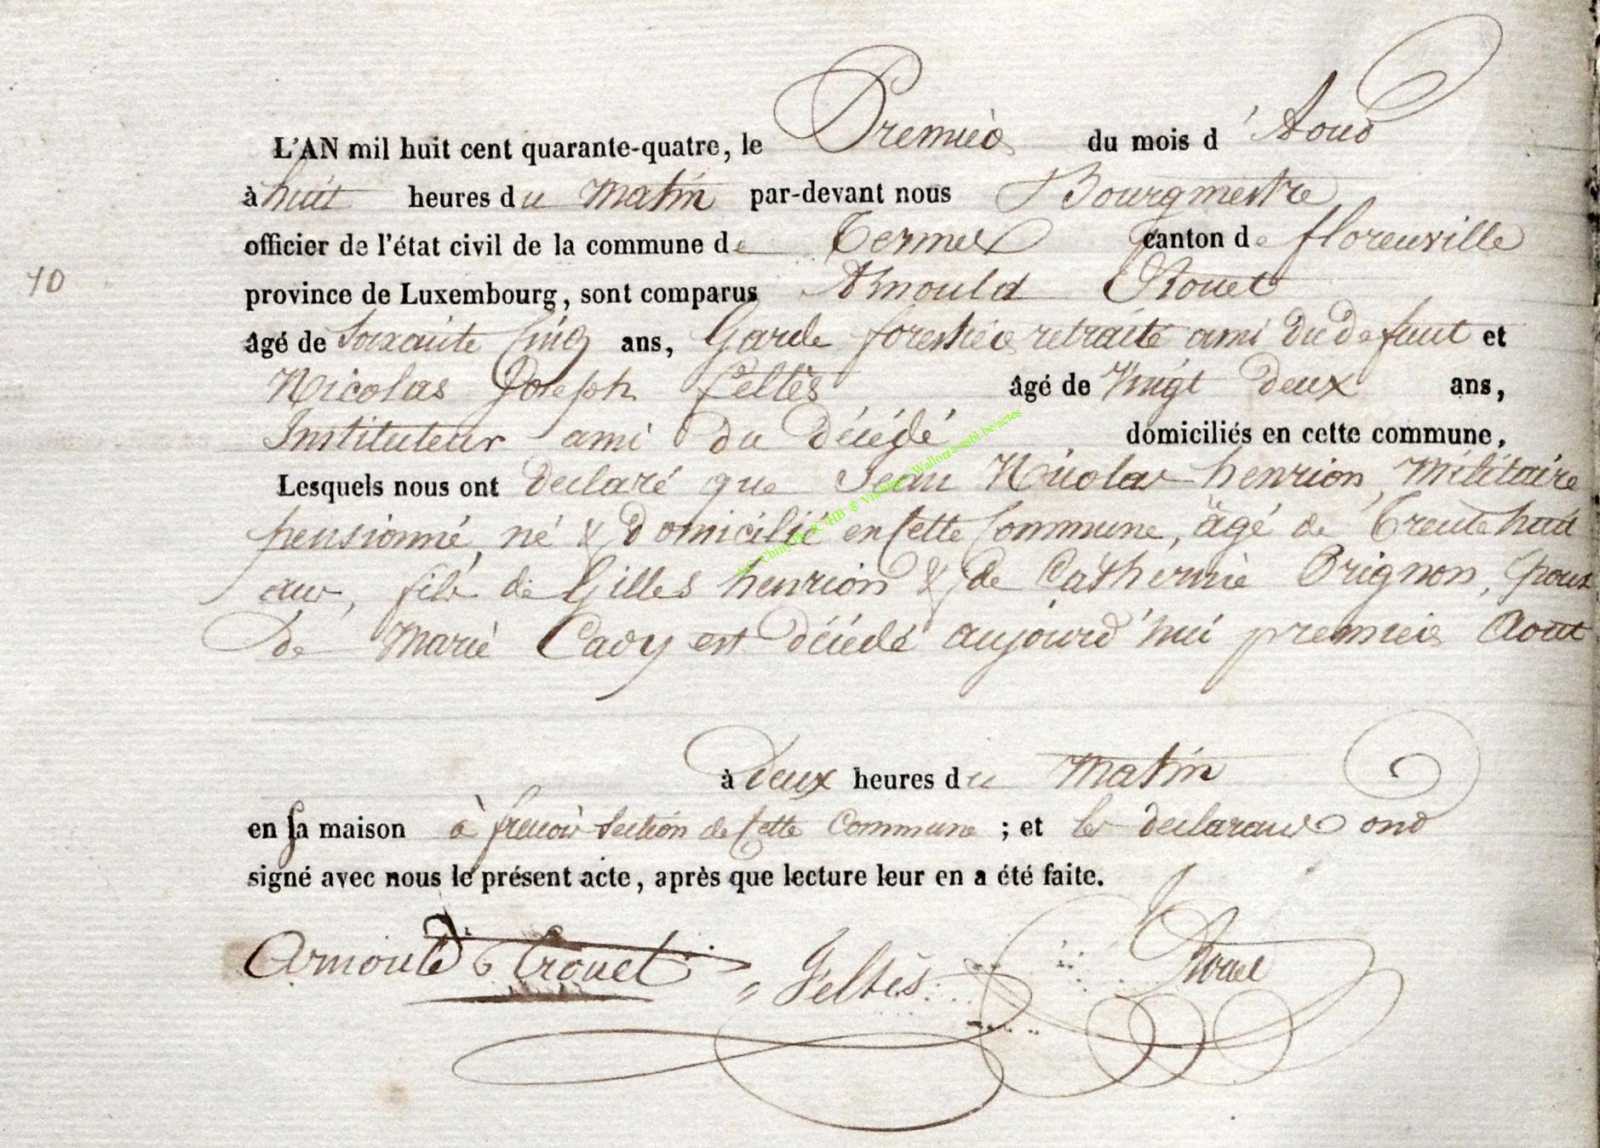 L'AN mil huit cent quarante-quatre, le Premier du mois d'Aout
à huit heures du Matin par-devant nous Bourgmestre
officier de l'état civil de la commune de Termes canton de florenville
10
province de Luxembourg, sont comparus Arnould
âgé de Soixante Cinq ans, Garde forestier retraité ami du defunt et
Nicolas Joseph Feltès âgé de Vingt deux ans,
Instituteur ami du décédé domiciliés en cette commune,
Lesquels nous ont declaré que Jean Nicolas henrion, Militaire
pensionné, né & domicilié en Cette Commune, âgé de Trente huit
ans, fils de Gilles henrion & de Catherine Orignon, Epoux
de Marie Cady est décédé aujourd'hui premier Aout
à deux heures du Matin
en sa maison à frenois Section de Cette Commune ; et les declarans ont
signé avec nous le présent acte, après que lecture leur en a été faite.
Arnould Feltès